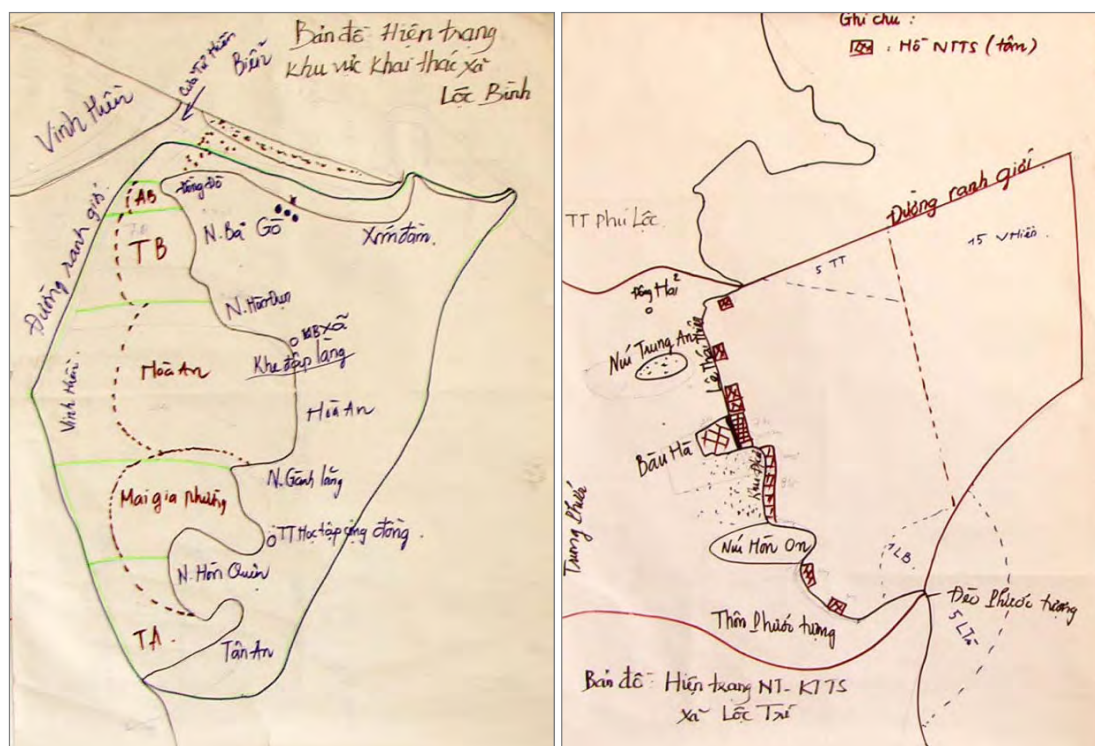 Bản đồ Hiện trạng
khu vực khai thác xã
Lộc Bình
Cửa Tư Hiền
Biển
Vinh Hiền
Đường ranh giới
AB
Đông Đò
TB
N. Bà Gò
Xóm đầm
N. Hòn Dụn
UB xã
Khe đập làng
Vinh Hiền
Hòa An
Hòa An
N. Gành lăng
Mai gia phường
TT Học tập cộng đồng
N. Hòn Quện
TA
Tân An
Ghi chú :
: Hồ NTTS (tôm)
TT Phú Lộc
Đường ranh giới
15 V Hiền
5 TT
Đông Hải 2
Núi Trung An
Bàu Hà
Trung Phước
Núi Hòn On
1 LB
Đèo Phước tượng
5 LTr
Thôn Phước tượng
Bản đồ Hiện trạng NT-KTTS
xã Lộc Trì